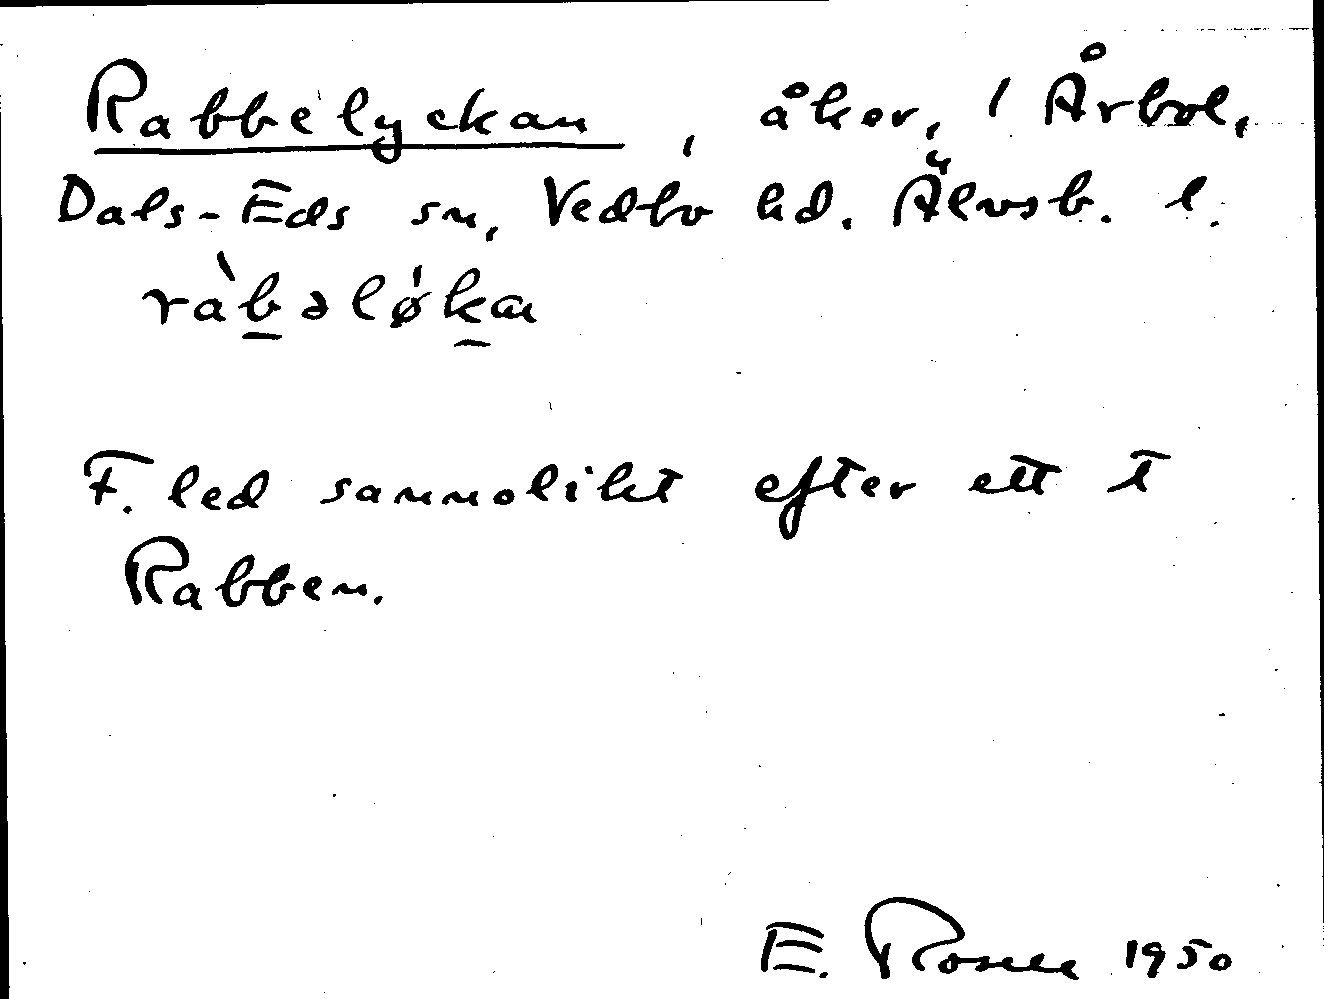 Rabbelyckan, åker, 1 Årbol,
Dals-Eds sn, Vedbo hd. Älvsb. l.
ràb̲əløk̲a
F. led sannolikt efter ett t
Rabben.
E. Rosell 1950